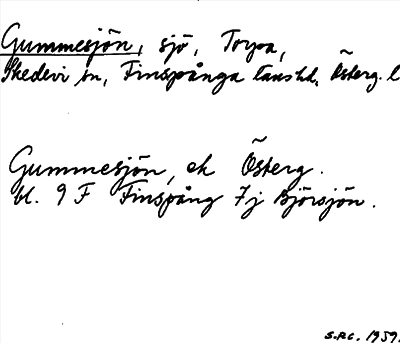 Gummesjön, sjö, Torpa,
Skedevi sn, Finspånga läns hd, Österg. l
Gummesjön, ek Österg.
bl. 9 F Finspång 7j Björsjön.
S.P.C. 1959.